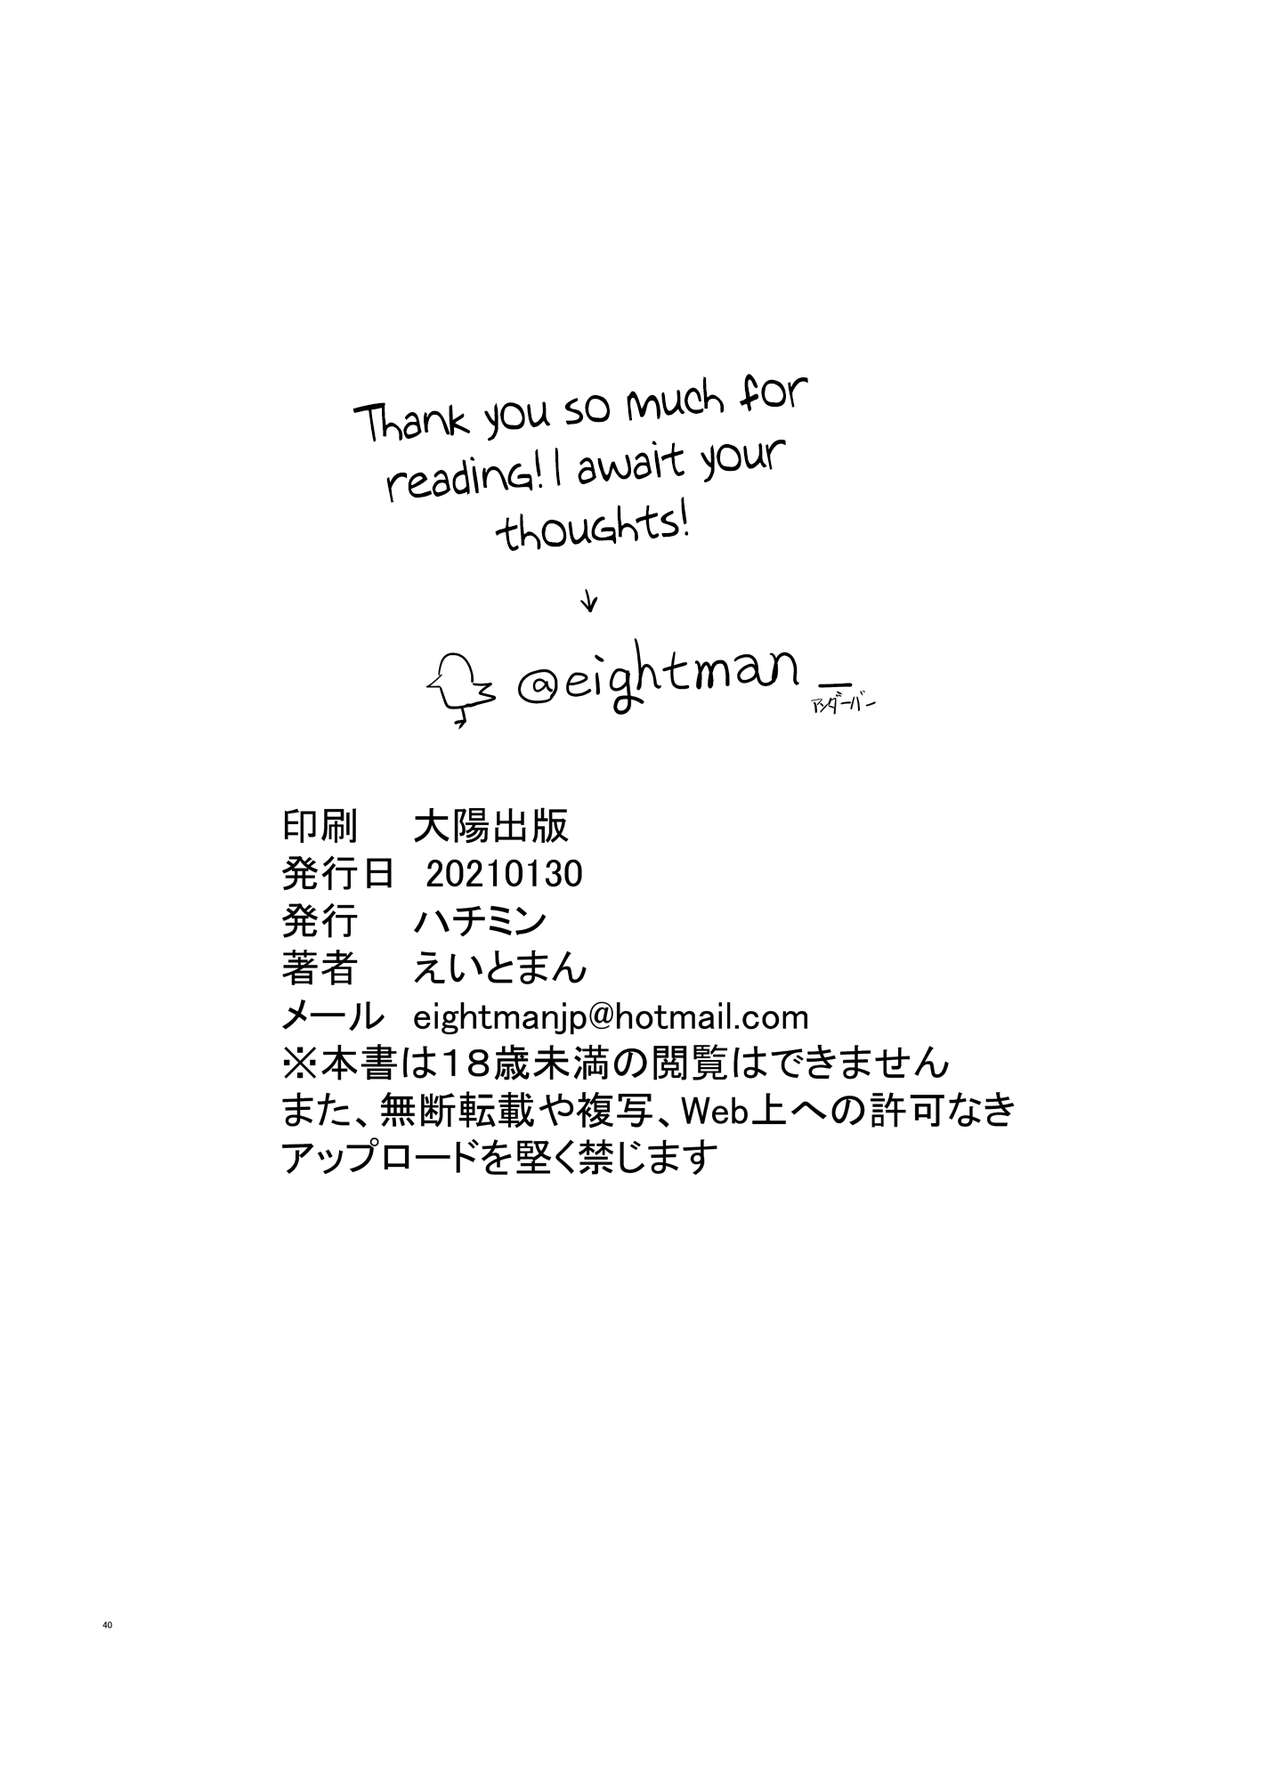 Thank you so much for
reading! I await your
thoughts!
↓
@eightman_
アンダーバー
印刷 大陽出版
発行日 20210130
発行 ハチミン
著者 えいとまん
メール eightmanjp@hotmail.com
※本書は１８歳未満の閲覧はできません
また、無断転載や複写、Web上への許可なき
アップロードを堅く禁じます
40